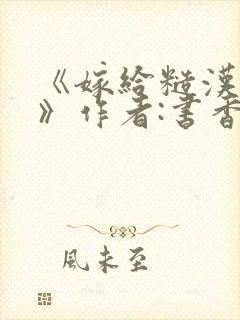 《嫁给糙漢
》作者:書香
風未至